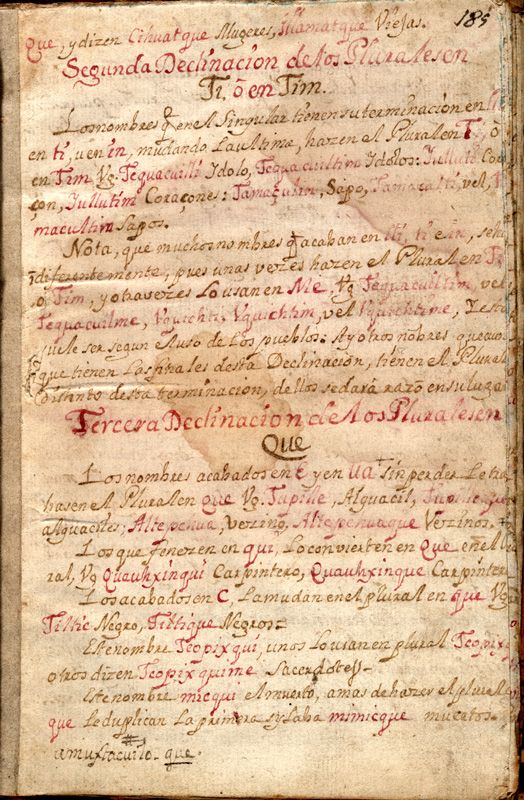 185
que, y dizen Cihuatque Mugeres, Illamatque Viejas.
Segunda Declinacion de los Plurales en
Ti, ô en Tim.
Los nombres q̃ en el Singular tienen su terminacion en
en ti, u en in, mudando La ultima, hazen el Plural en Ti, o
en Tim Vg. Tequacuilli Idolo, Tequacuiltim Idolos: Iullutli Cora
çon, Iullutim Coraçones: Tamaçulin, Sapo, Tamaçulti, vel,
maçultim Sapos.
Nota, que muchos nombres q̃ acaban en lli, ti e in, se
diferentemente; pues unas vezes hazen el Plural en
o Tim, y otras vezes Lo usan en Me, Vg Tequacuiltim, vel
Tequacuilme, Vquichti. Vquichtim, vel Vquichtime, Y esto
suele ser segun el uso de Los pueblos. Ay otros nõbres que aun
que tienen Las finales desta Declinacion, tienen el Plural
distinto desta terminacion, dellos se dará razõ en su lugar
Tercera Declinacion de los Plurales en
Que
Los nombres acabados en E y en ua sin perder Letra
hasen el Plural en que Vg. Tupile, Alguacil,
alguaciles; Altepehua, vezino, Altepehuaque Vezinos.
Los que fenezen en qui, Lo convierten en que en el
ral, Vg Quauhxinqui Carpintero, Quauhxinque Carpinter
Los acabados en C, La mudan en el plural en que Vg
Tiltic Negro, Tiltique Negros.
Este nombre Teopixqui, unos Lo usan en plural
otros dizen Teopixquime Sacerdotes.
Este nombre micqui el muerto, amas de hazer el plural
que Le duplican La primera sylaba mimicque muertos.
amuxtacuilo. que.